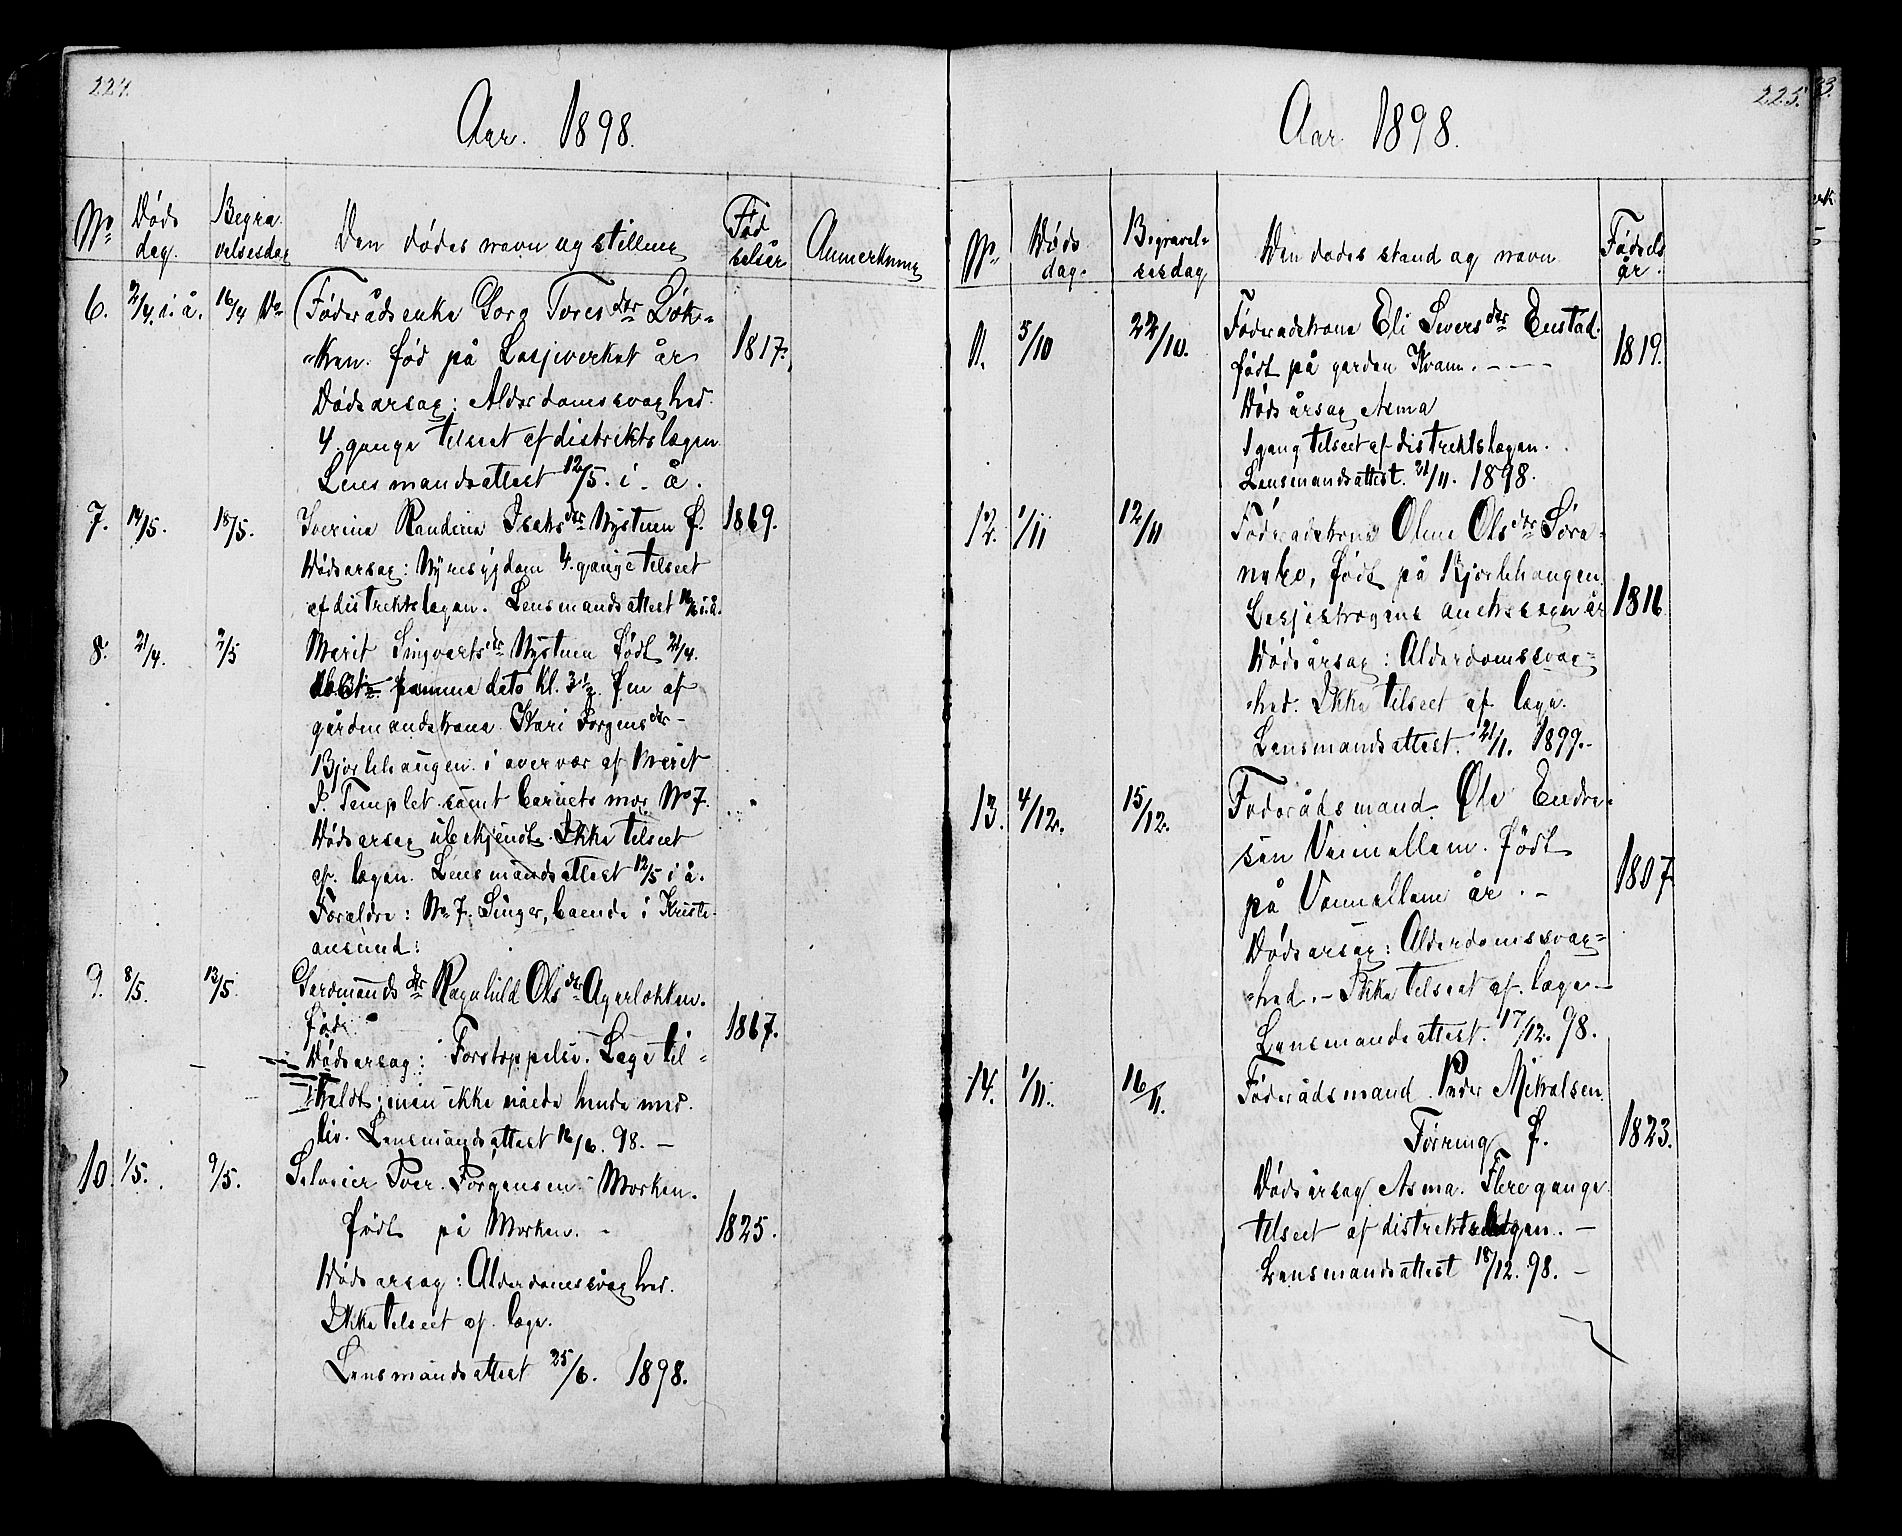 224.
Aar. 1898.
No Døds dag. Begra velsesdag Den dødes navn og stilling Fød selsår Anmerkning
6. 2/4. i å. 16/4 Do Føderådsenke Goro Tores dtr Løk-
ken. fød på Lesjeverket år 1817.
Dødsarsag: Alderdomssvaghed.
4 gange tilseet af distriktslægen
Lensmandsattest 12/5. i. å.
7. 14/5. 18/5. Iverine Randine Isaks dtr Nystuen f. 1869.
Dødsarsag: Nyresygdom 4. gange tilseet
af distriktslægen. Lensmandsattest i. å.
8. 21/4. 2/5 Marit Singverts dtr Nystuen født 21/4.
samme dato kl. 3 1/2. Fm af
gårdmandskone Kari Jorgens dtr-
Bjorlihaugen i overvær af Marit
J. Templet samt barnets mor No 7.
Dødsarsag ubekjendt. Ikke tilseet
af. lægen. Lensmandsattest 12/5 i å.
Forældre: No 7. Singer, boende i Kristi-
ansund:
9. 8/5. 13/5. Gardmands dtr Ragnhild Ols dtr Agerløkken.
fød: 1867.
Dødsarsag: Forstoppelse. Læge til-
kaldt; men ikke nåede hende med
liv. Lensmandsattest 16/6. 98. —
10. 1/5. 9/5. Selveier Iver Jørgensen - Morken.
født på Morken. - 1825.
Dødsarsag: Alderdomssvaghed.
Ikke tilseet af. læge.
Lensmandsattest 25/6. 1898.
225.
Aar 1898.
No Døds dag. Begravel- sesdag Den dødes stand og navn Fødsels år.
11. 5/10 22/10. Føderadskone Eli Sivers dtr Enstad.
født på garden Kvam. - - - 1819.
Dødsårsag Asma
1 gang tilseet af distriktslægen.
Lensmandsattest. 21/11. 1898.
12. 1/11 12/11 Føderadskone Olene Ols dtr Søre-
nebø, født på Bjorlihaugen
Lesjeskogens anekssogn år 1816
Dødsårsag: Alderdomssvag-
hed. Ikke tilseet af. læge.
Lensmandsattest. 21/1. 1899.-
13. 4/12. 15/12. Foderådsmand. Ole Endre-
sen Vaimellem. født
på Vaimellem år . - 1807
Dødsarsag: Alderdomssvag-
hed. - Ikke tilseet af. læge -
Lensmandsattest. 17/12. 98.
14. 1/11. 16/11. Føderådsmand Peder Mikalsen
Tørring f. 1823.
Dødsårsag Asma. Flere gange
tilseet af distriktslægen. -
Lensmandsattest 18/12. 98. -